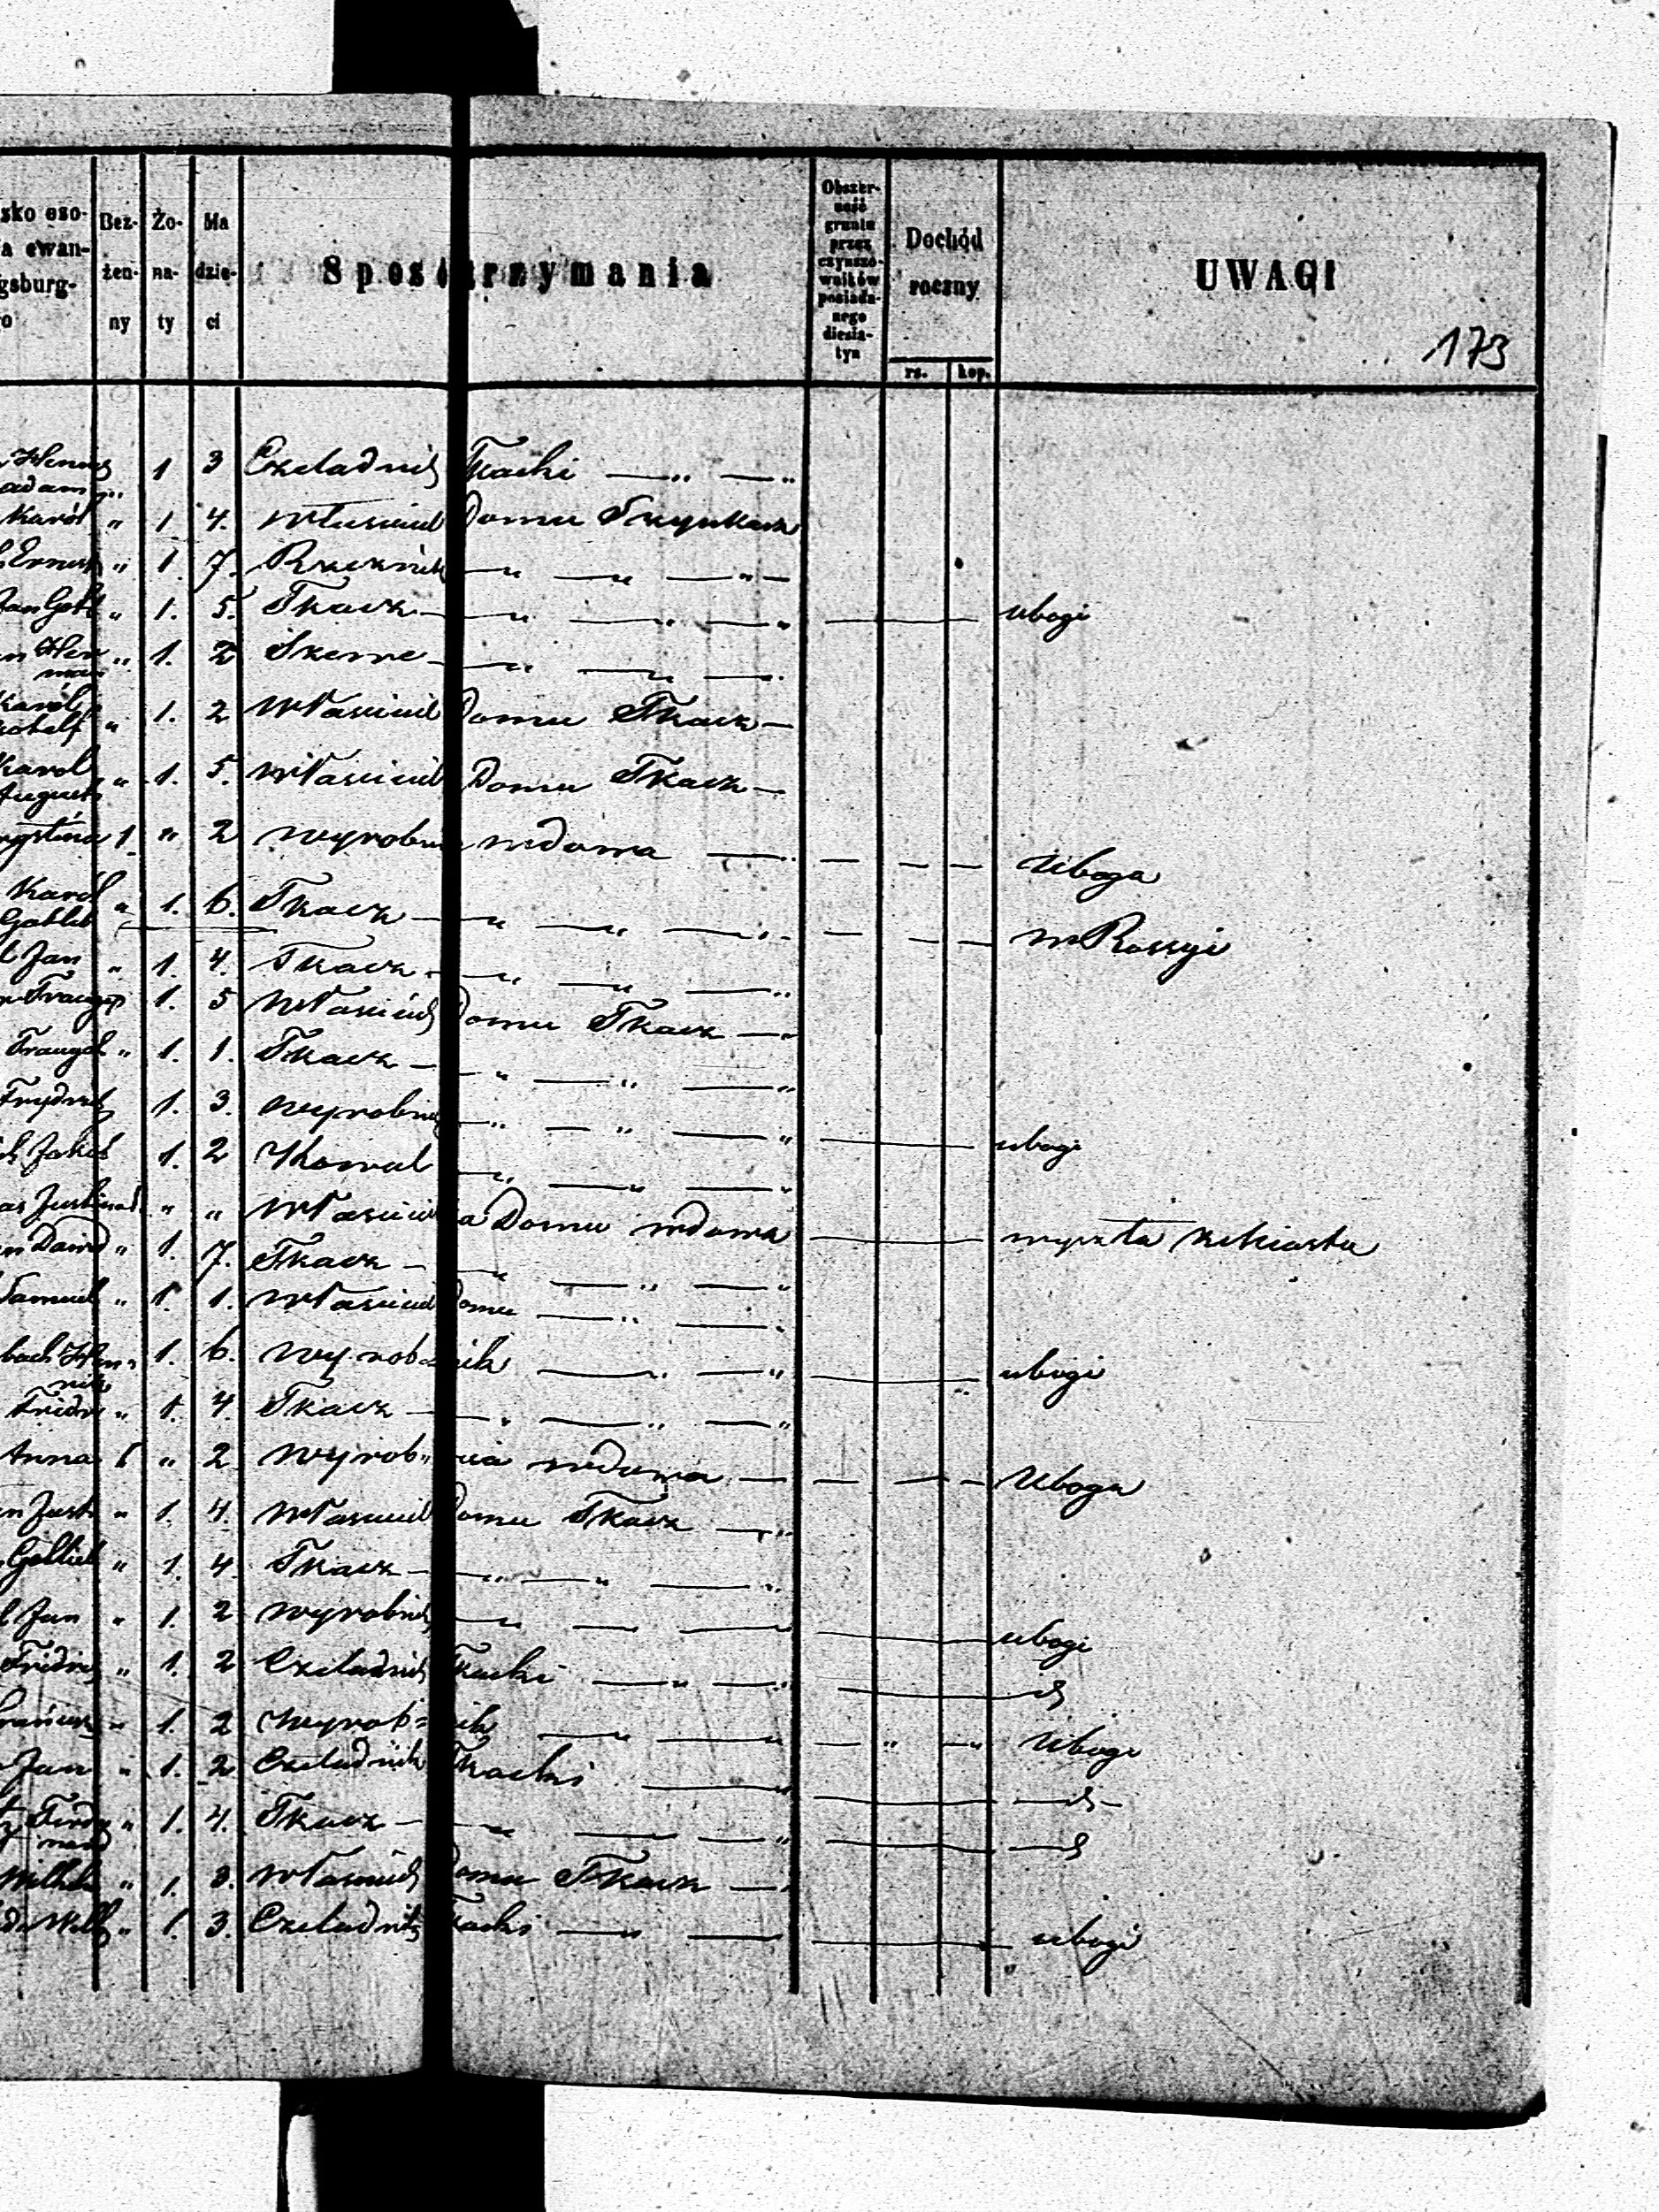 sko oso-
a ewan-
gsburg-
o
Beż-
żen-
ny
Żo-
na-
ty
Ma
dzie-
ci
Sposó
trzymania
Obszer-
ność
gruntu
przez
czynszo-
wników
posiada-
nego
diesia-
tyn
Dochód
roczny
rs. kop.
UWAGI
173
1 3 Czeladnik Tkacki — „ — „
adam „
Karol „ 1 4. Własciciel Domu Szynkarz
Ernest „ 1. 7. Rzeznik — „ — „ — „ —
Jan Gottl „ 1. 5. Tkacz — „ — „ — „ ubogi
„ 1. 2
Karol
„ 1. 2 Własciciel Domu Tkacz —
Karol „ 1. 5. Własciciel Domu Tkacz —
August
1. „ 2 wyrobnica wdowa — „ — — — Uboga
Karol „ 1. 6. Tkacz — „ — „ — „ — — — w Rossyi
Gotlib
Jan „ 1. 4. Tkacz — „ — „ — „
Traugot 1. 5 Własciciel Domu Tkacz — „
Traugot „ 1. 1. Tkacz — „ — „ — „
Frydrich 1. 3. wyrobnik — „ — „ — „ ubogi
Jakob 1. 2 Kowal — „ — „ — „
Justina „ „ Włascicielka Domu wdowa — wyszła
Dawid „ 1. 7. Tkacz — „ — „ — „
Samuel „ 1. 1. Własciciel Domu — „ — „
bach Hen „ 1. 6. wyrob=nik — „ — „ ubogi
rik
Fridr „ 1. 4. Tkacz — „ — „ — „
Anna 1 „ 2 wyrob=nica wdowa — — — — Uboga
Just „ 1. 4. Własciciel Domu Tkacz — „
Gottlieb „ 1. 4. Tkacz — „ — „ — „
Jan „ 1. 2 wyrobnik — „ — — ubogi
Fridrich „ 1. 2 Czeladnik Tkacki — „ — „
„ 1. 2 wyrob=nik — „ — „ — „ — „ Ubogi
Jan „ 1. 2 Czeladnik Tkacki — „
Ferdy „ 1. 4. Tkacz — „ — — „
nand
Wilhelm „ 1. 3. Własciciel Domu Tkacz — „
Wilh „ 1. 3. Czeladnik Tkacki — „ — ubogi